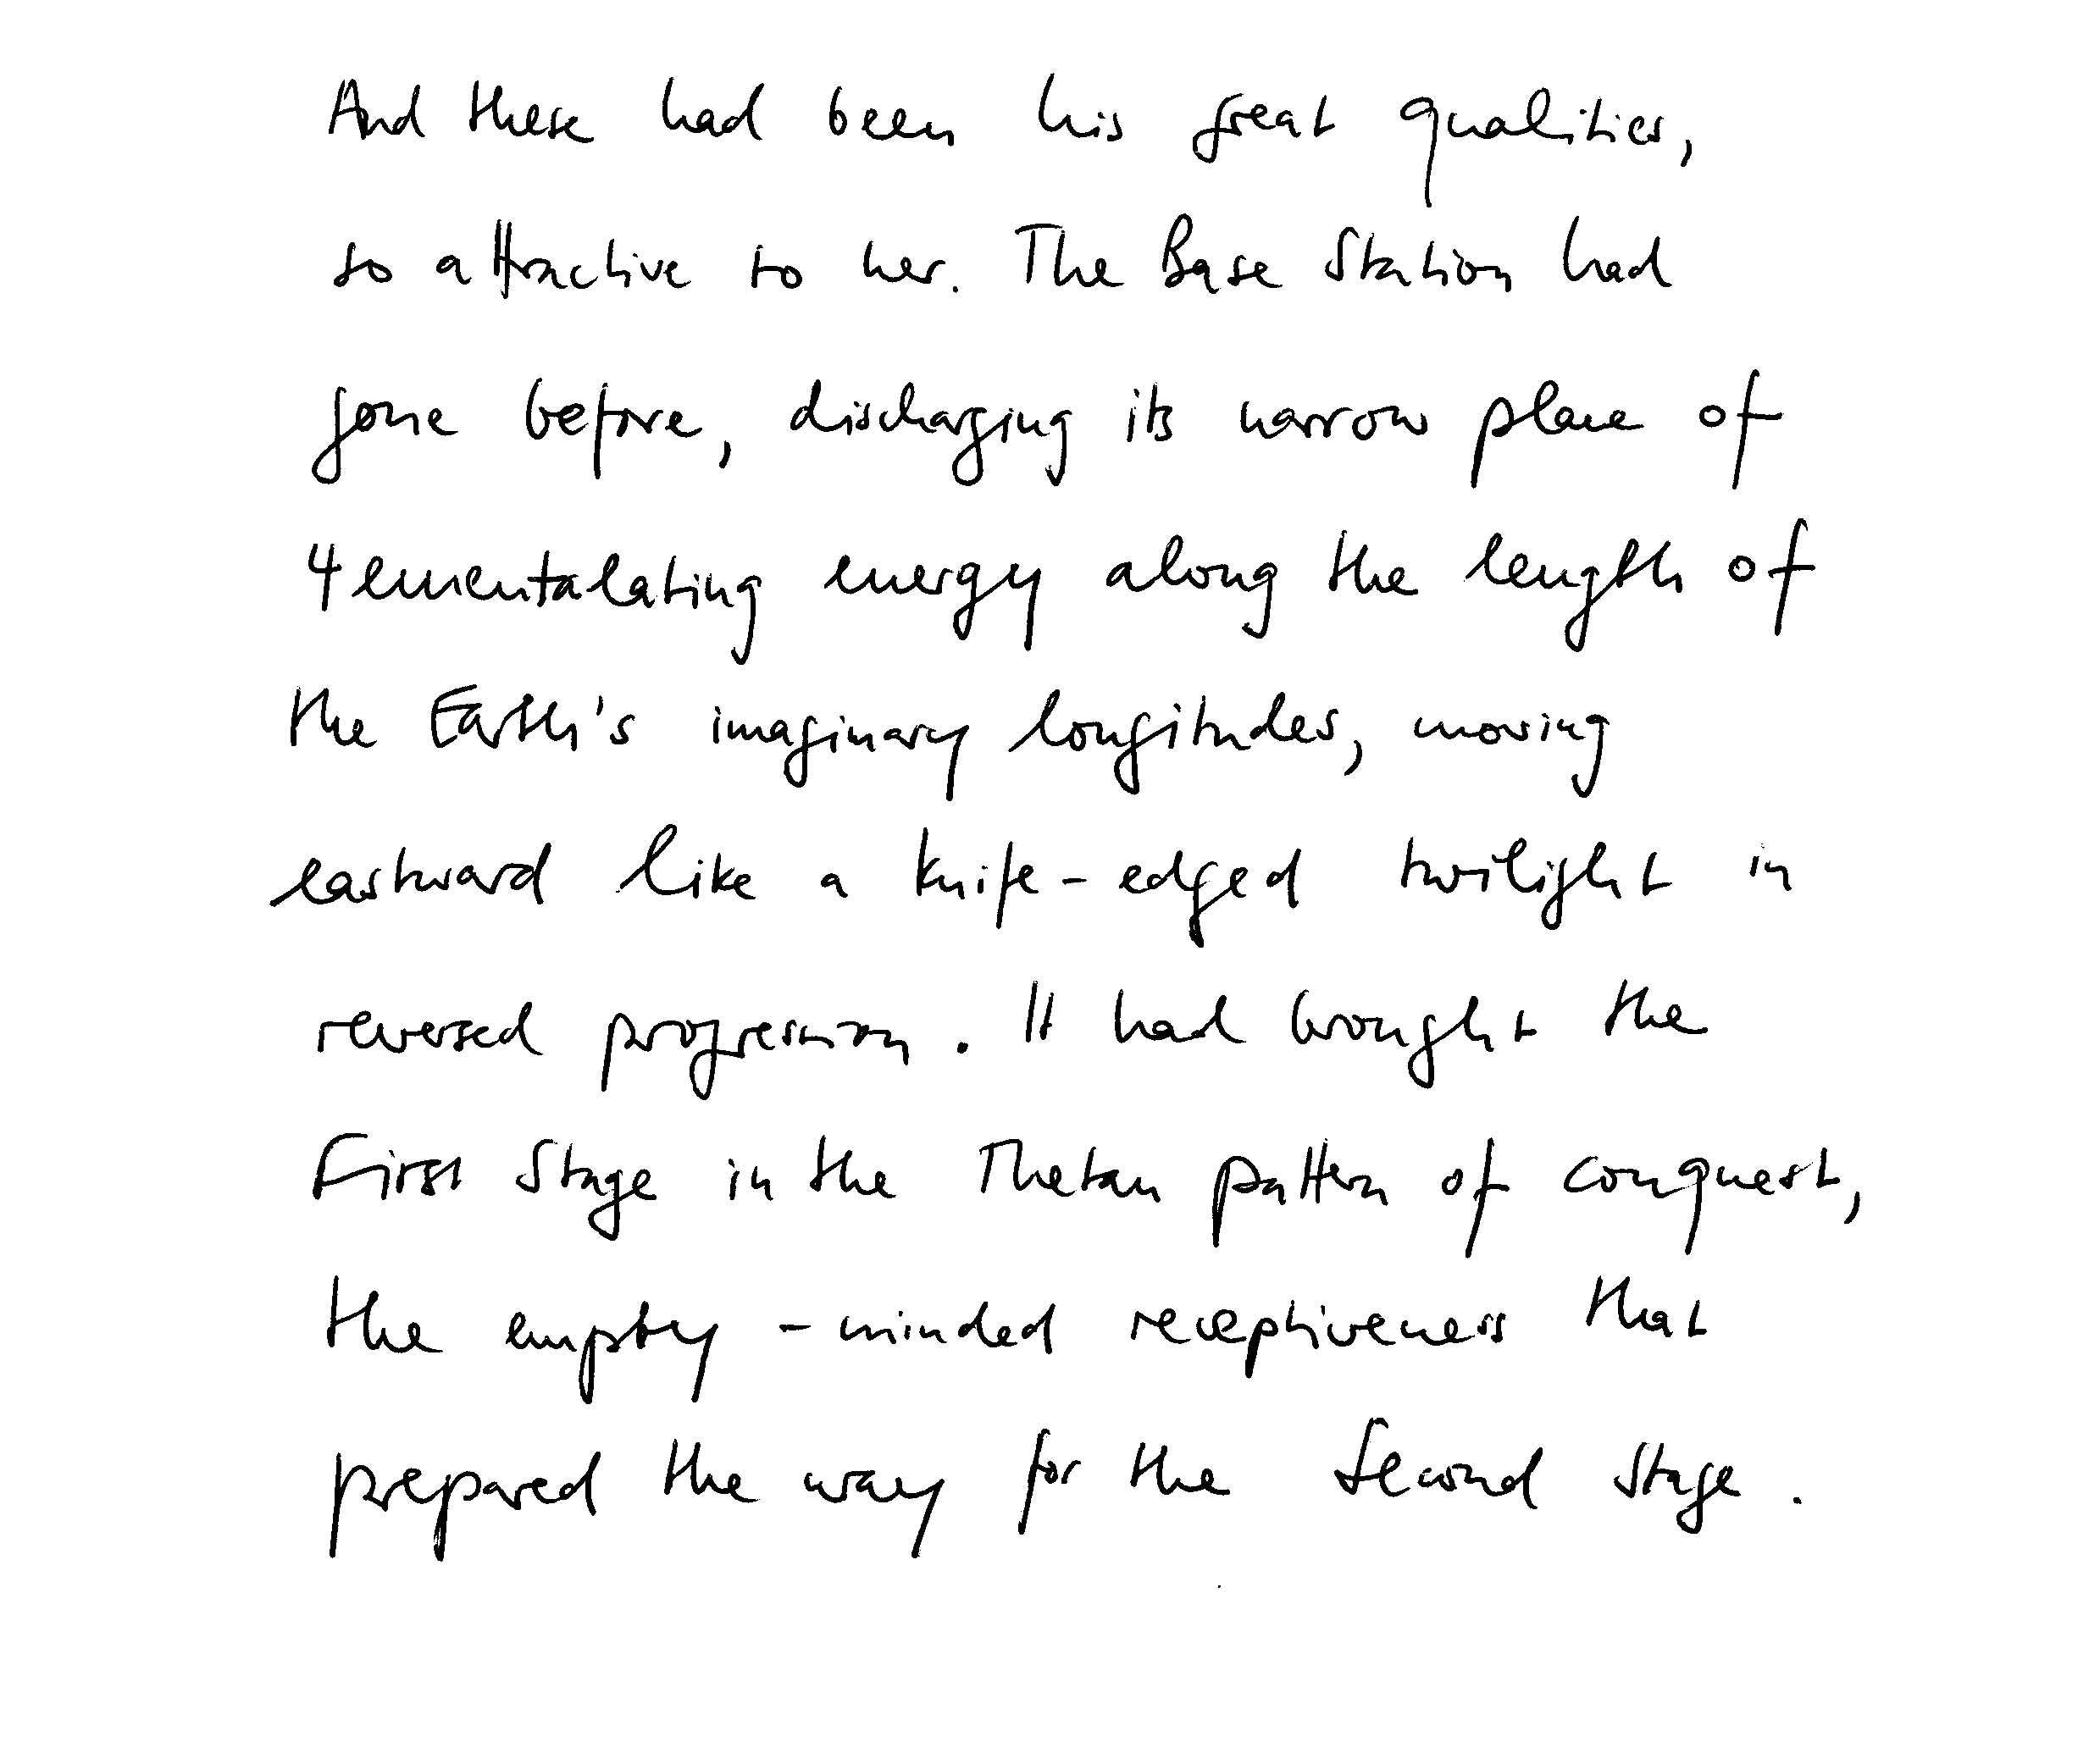 And these had been his great qualities,
so attractive to her. The Base Station had
gone before, discharging its narrow place of
4ementalating energy along the length of
the Earth's imaginary longitudes, moving
eastward like a knife-edged twilight in
reversed progression. It had brought the
First Stage in the Thetan pattern of conquest,
the empty-minded receptiveness that
prepared the way for the Second Stage.